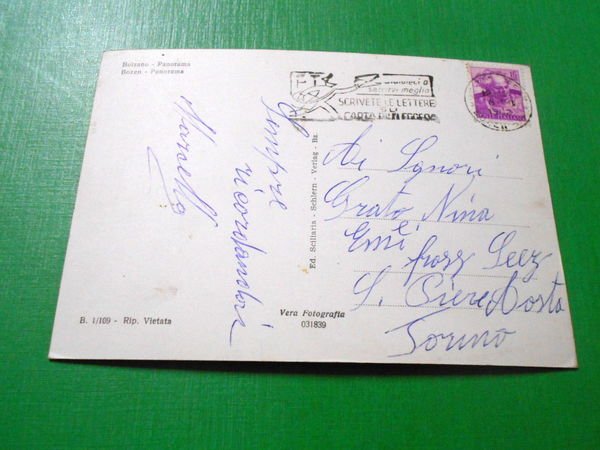 Bolzano - Panorama
Bozen - Panorama
Sempre
ricordandovi
Marcello
B. 1/109 - Rip. Vietata
Vera Fotografia
031839
Ed. Sciliaria - Schlern - Verlag - Bz.
scrivi meglio
SCRIVETE LE LETTERE
SU
CARTA DA LETTERE
Ai Signori
Grato Nina
S. Piere Costa
Torino